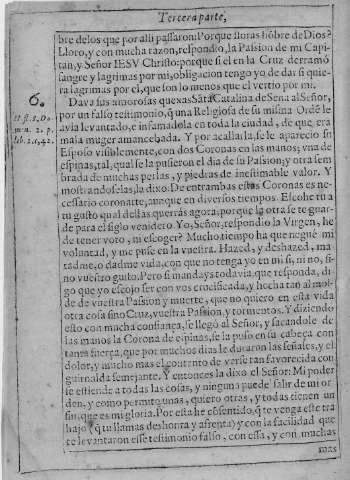 Tercera parte,
bre de los que por alli passaron: Porque lloras hōbre de Dios?
Lloro, y con mucha razon, respondio, la Passion de mi Capi-
tan, y Señor IESV Christo: porque si el en la Cruz derramó
sangre y lagrimas por mi, obligacion tengo yo de dar si quie-
ra lagrimas por el, que son lo menos que el vertio por mi.
6.
Dava sus amorosas quexas Sāta Catalina de Sena al Señor,
por un falso testimonio, q̃ una Religiosa de su misma Ordē le
avia levantado, e infamadola en toda la ciudad, de que era
mala muger amancebada. Y por acallarla, se le aparecio su
Esposo visiblemente, con dos Coronas en las manos; vna de
espinas, tal, qual se la pusieron el dia de su Passion; y otra sem
brada de muchas perlas, y piedras de inestimable valor. Y
mostrandoselas, la dixo. De entrambas estas Coronas es ne-
cessario coronarte, aunque en diversos tiempos. Escoһe tu a
tu gusto qual dellas querrás agora; porque la otra se te guar-
de para el siglo venidero. Yo, Señor, respondio la Virgen, he
de tener voto, ni escoger? Mucho tiempo ha que negué mi
voluntad, y me puse en la vuestra. Hazed, y deshazed, ma-
tadme, o dadme vida, con que no tenga yo en mi si, ni no, si-
no vuestro gusto. Pero si mandays todavia, que responda, di-
go que yo escojo ser con vos crucificada, y hecha tan al mol-
de de vuestra Passion y muerte, que no quiero en esta vida
otra cosa sino Cruz, vuestra Passion, y tormentos. Y diziendo
esto con mucha confiança, se llegó al Señor, y sacandole de
las manos la Corona de espinas, se la puso en su cabeça con
tanta fuerça, que por muchos dias le duraron las señales, y el
dolor, y mucho mas el contento de verse tan favorecida con
guirnalda semejante. Y entonces la dixo el Señor: Mi poder
se estiende a todas las cosas, y ninguna puede salir de mi or-
den, y como permito unas, quiero otras, y todas tienen un
fin, que es mi gloria. Por esta he cōsentido, q̃ te venga este tra
bajo (q̃ tu llamas deshonra y afrenta) y con la facilidad que
te levantaron esse testimonio falso, con essa, y con muchas
mas